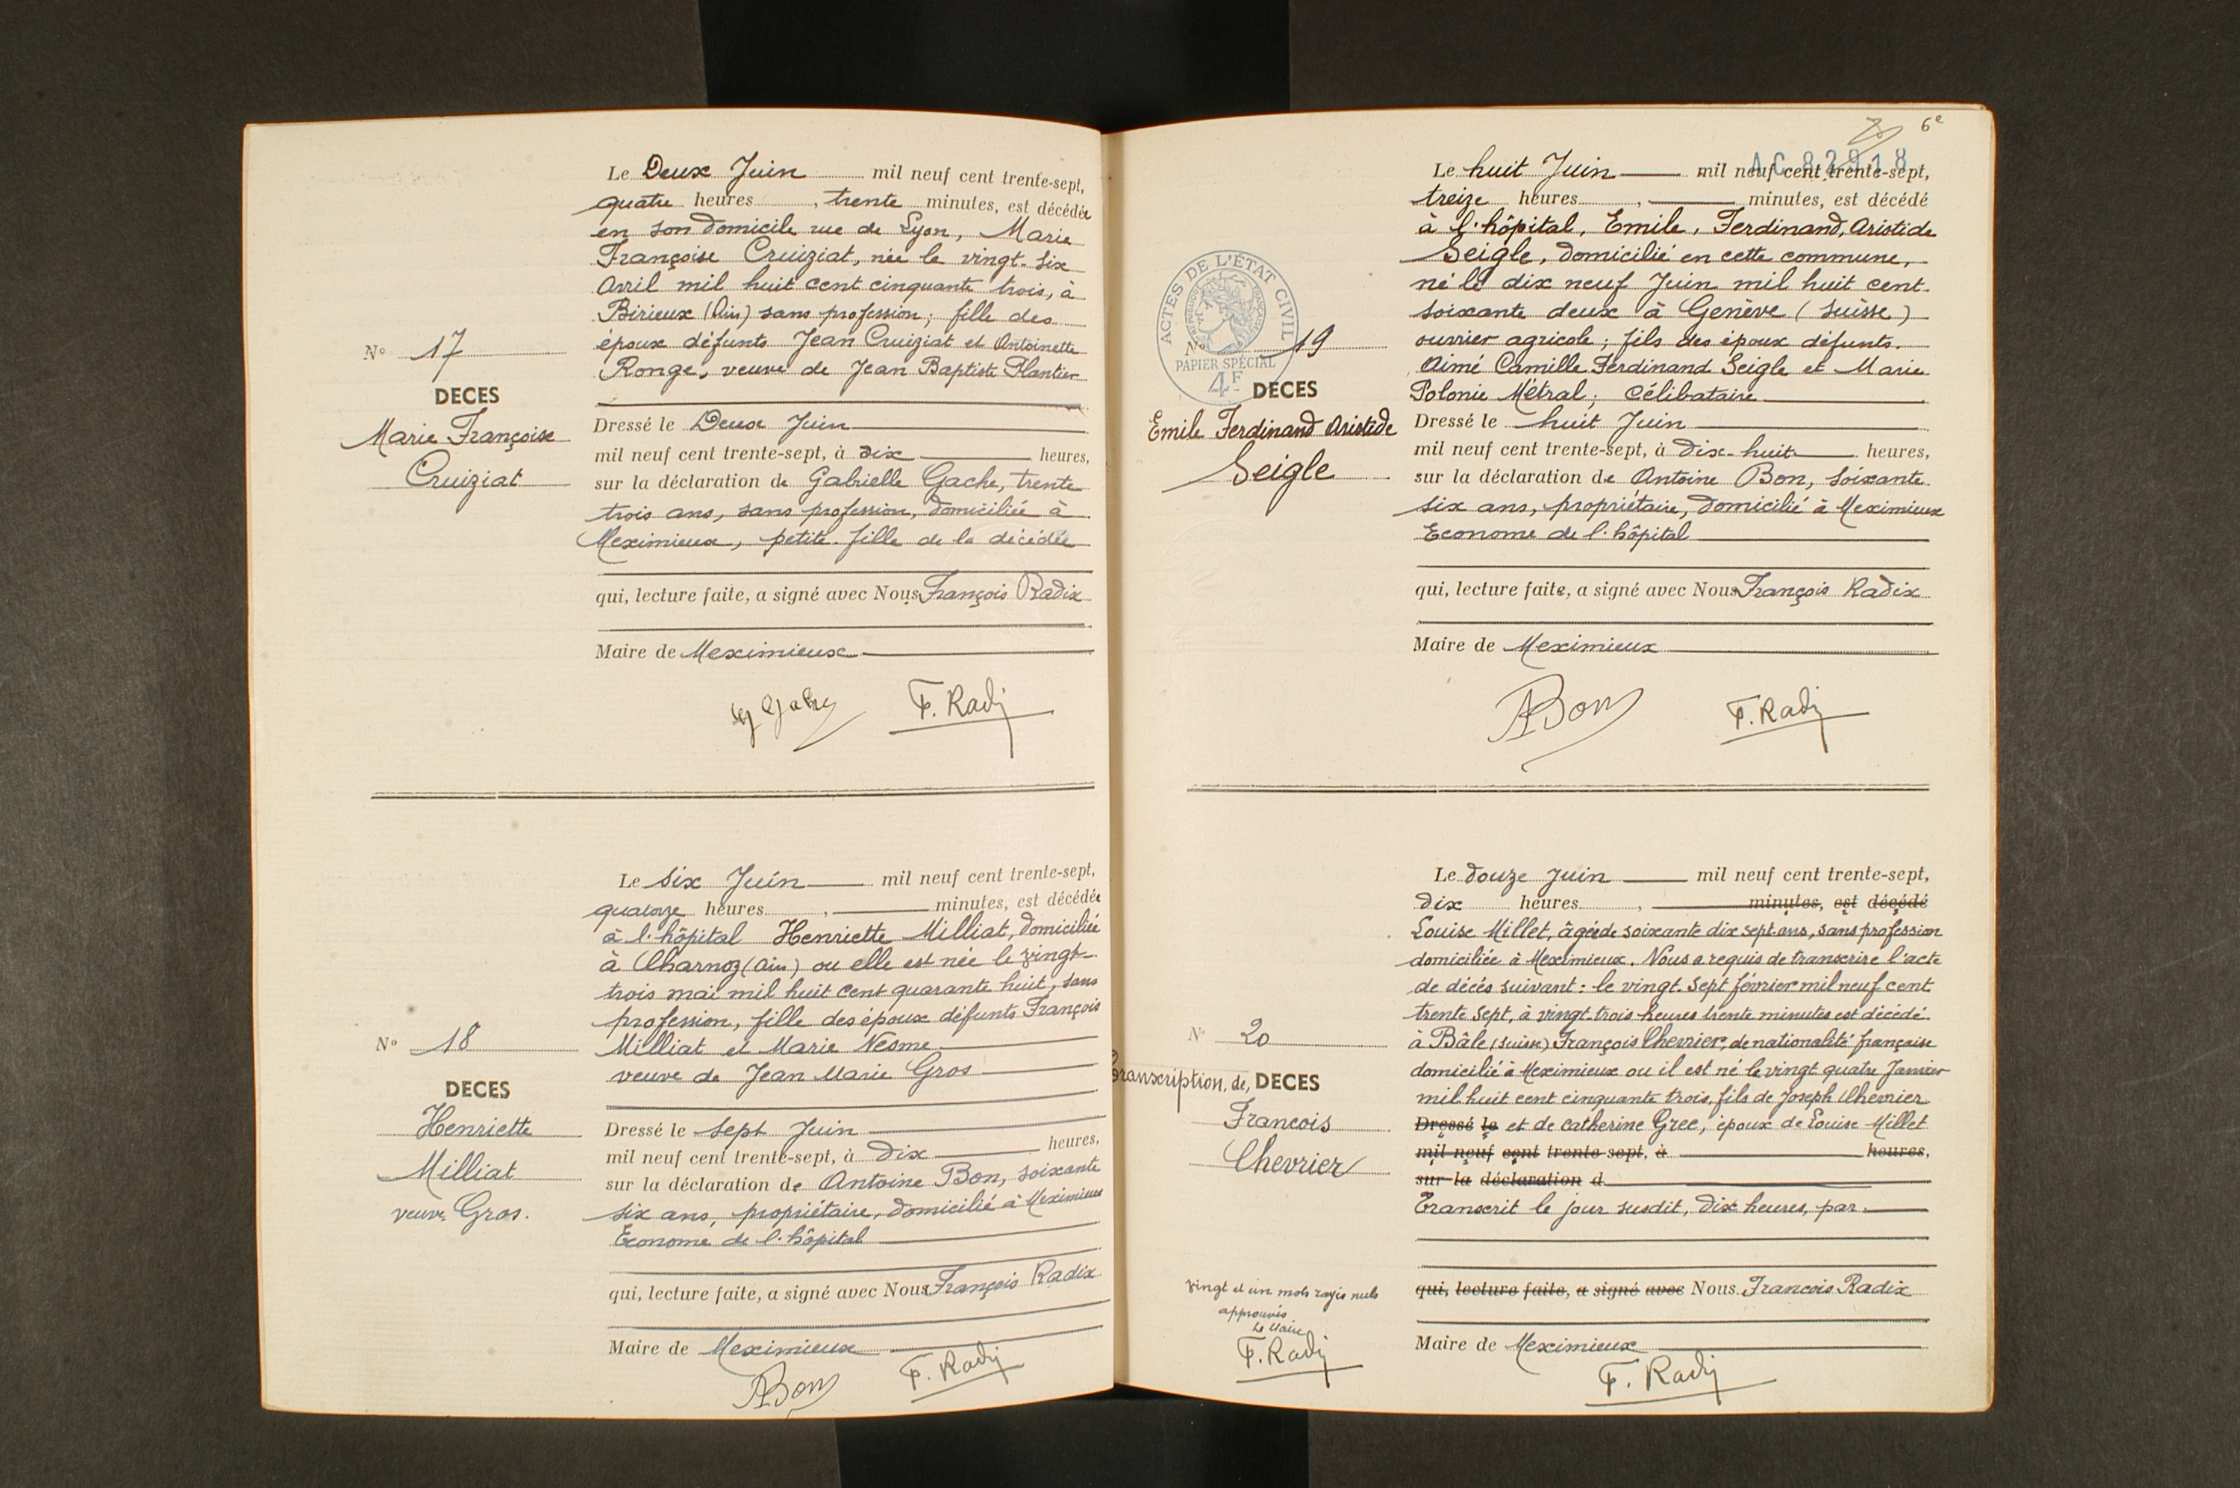 Le Deux Juin mil neuf cent trente-sept,
quatre heures, trente minutes, est décédée
en son domicile rue de Lyon, Marie
Françoise Cruiziat, née le vingt-six
Avril mil huit cent cinquante trois, à
Birieux (Ain) sans profession; fille des
époux défunts Jean Cruiziat et Antoinette
Ronge, veuve de Jean Baptiste Plantier
N° 17
DECES
Marie Françoise
Cruiziat
Dressé le Deux Juin
mil neuf cent trente-sept, à dix heures,
sur la déclaration de Gabrielle Gache, trente
trois ans, sans profession, domiciliée à
Meximieux, petite-fille de la décédée
qui, lecture faite, a signé avec Nous François Radix
Maire de Meximieux
F. Radix
Le six Juin mil neuf cent trente-sept,
quatorze heures, minutes, est décédée
à l'hôpital Henriette Milliat, domiciliée
à Charnoz (Ain) ou elle est née le vingt-
trois mai mil huit cent quarante huit, sans
profession, fille des époux défunts François
Milliat et Marie Nesme
veuve de Jean Marie Gros
N° 18
DECES
Henriette
Milliat
veuve Gros.
Dressé le sept Juin
mil neuf cent trente-sept, à dix heures,
sur la déclaration de Antoine Bon, soixante
six ans, propriétaire, domicilié à Meximieux
Econome de l'hôpital
qui, lecture faite, a signé avec Nous François Radix
Maire de Meximieux
ABon F. Radix
6e
Le huit Juin mil neuf cent trente-sept,
treize heures, minutes, est décédé
à l'hôpital, Emile, Ferdinand, Aristide
Seigle, domicilié en cette commune,
né le dix neuf Juin mil huit cent
soixante deux à Genève (Suisse)
ouvrier agricole; fils des époux défunts
Aimé Camille Ferdinand Seigle et Marie
Polonie Métral; célibataire
ACTES DE L'ÉTAT CIVIL
PAPIER SPÉCIAL
4F
N° 19
DECES
Emile Ferdinand Aristide
Seigle
Dressé le huit Juin
mil neuf cent trente-sept, à dix-huit heures,
sur la déclaration de Antoine Bon, soixante
six ans, propriétaire, domicilié à Meximieux
Econome de l'hôpital
qui, lecture faite, a signé avec Nous François Radix
Maire de Meximieux
ABon F. Radix
Le douze Juin mil neuf cent trente-sept,
dix heures, minutes, est décédé
Louise Millet, âgée de soixante dix sept ans, sans profession
domiciliée à Meximieux. Nous a requis de transcrire l'acte
de décès suivant: le vingt-sept février mil neuf cent
trente sept, à vingt-trois heures trente minutes est décédé
à Bâle (Suisse) François Chevrier, de nationalité française
domicilié à Meximieux ou il est né le vingt quatre Janvier
mil huit cent cinquante trois, fils de Joseph Chevrier
Dressé le et de Catherine Grec, époux de Louise Millet
mil neuf cent trente-sept, à heures,
sur la déclaration d
Transcrit le jour susdit, dix heures, par
N° 20
Transcription de DECES
Francois
Chevrier
qui, lecture faite, a signé avec Nous Francois Radix
Maire de Meximieux
F. Radix
vingt et un mots rayés nuls
approuvés
Le Maire
F. Radix